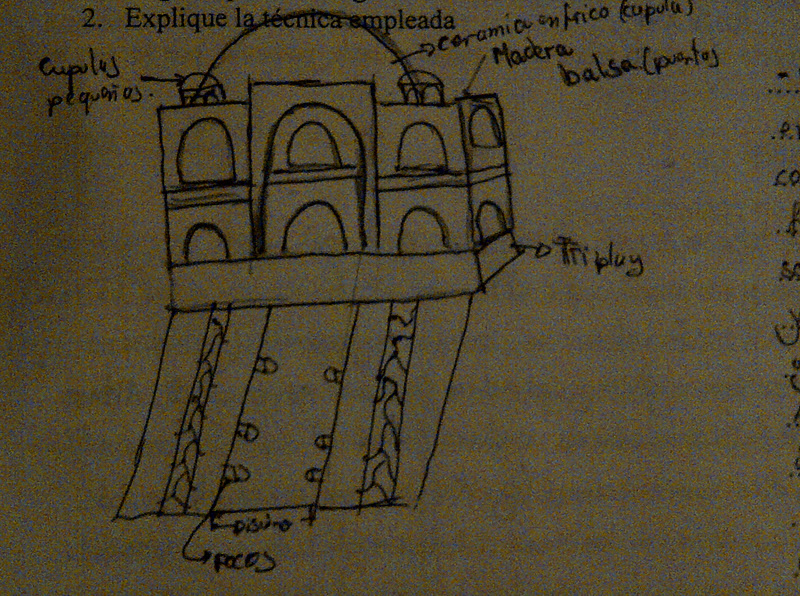 2. Explique la técnica empleada
ceramica en frico (cupula)
Madera
balsa (puertas
cupulas
pequeñas.
Triplay
Diseño
Focos